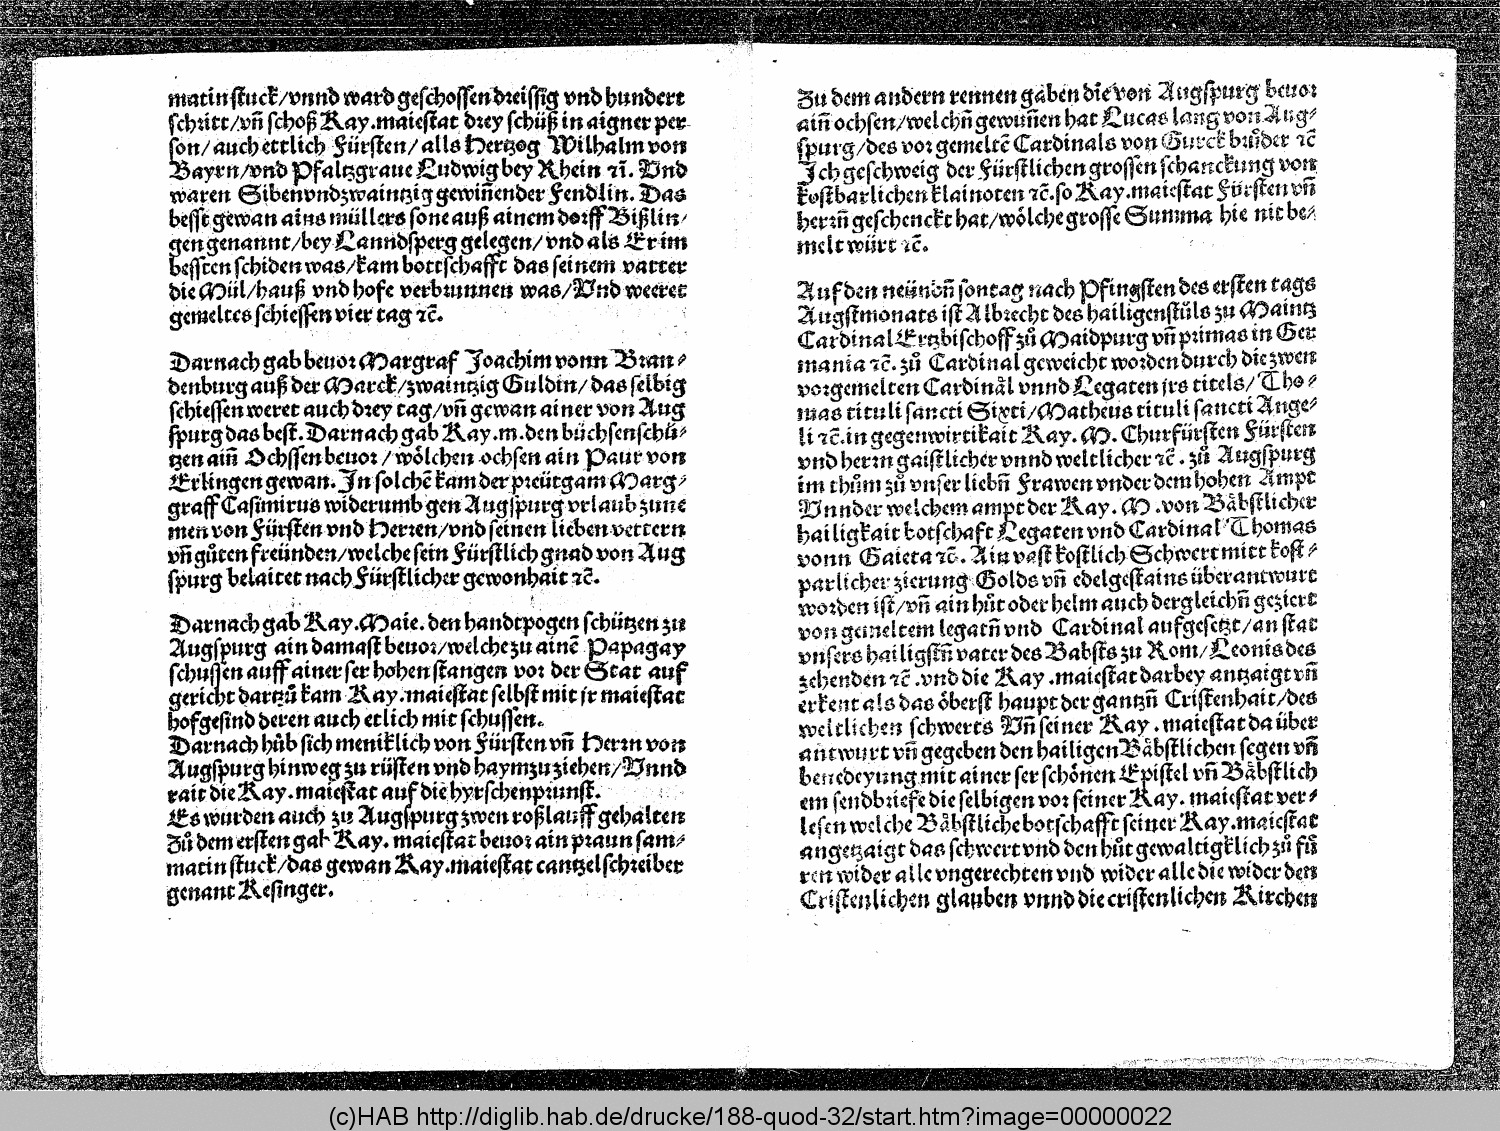 matin stuck/vnnd ward geschossen dreissig vnd hundert
schritt/vñ schoß Kay.maiestat drey schüß in aigner per
son/auch ettlich Fürsten/alls Hertzog Wilhalm von
Bayrn/vnd Pfaltzgraue Ludwig bey Rhein ⁊ĩ. Vnd
waren Sibenvndzwaintzig gewiñender Fendlin. Das
besst gewan ains müllers sone auß ainem dorff Bißlin/
gen genannt/bey Lanndsperg gelegen/vnd als Er im
bessten schiden was/kam bottschafft das seinem vatter
die Mül/hauß vnd hofe verbrunnen was/Vnd weeret
gemeltes schiessen vier tag ⁊c̃.
Darnach gab beuor Margraf Joachim vonn Bran/
denburg auß der Marck/zwaintzig Guldin/das selbig
schiessen weret auch drey tag/vñ gewan ainer von Aug
spurg das best. Darnach gab Kay.m.den büchsenschü/
tzen aiñ Ochssen beuor/wölchen ochsen ain Paur von
Erlingen gewan. In solchẽ kam der preütgam Marg/
graff Casimirus widerumb gen Augspurg vrlaub zune
men von Fürsten vnd Herren/vnd seinen lieben vettern
vñ gůten freünden/welche sein Fürstlich gnad von Aug
spurg belaitet nach Fürstlicher gewonhait ⁊c̃.
Darnach gab Kay.Maie. den handtpogen schützen zu
Augspurg ain damast beuor/welche zu ainẽ Papagay
schussen auff ainer ser hohen stangen vor der Stat auf
gericht dartzů kam Kay.maiestat selbst mit jr maiestat
hofgesind deren auch etlich mit schussen.
Darnach hůb sich meniklich von Fürsten vñ Herrn von
Augspurg hinweg zu rüsten vnd haymzuziehen/Vnnd
rait die Kay.maiestat auf die hyrschenprunst.
Es wurden auch zu Augspurg zwen roßlauff gehalten
Zů dem ersten gab Kay. maiestat beuor ain praun sam/
matin stuck/das gewan Kay.maiestat cantzelschreiber
genant Kesinger.
Zu dem andern rennen gaben die von Augspurg beuor
aiñ ochsen/welchñ gewuñen hat Lucas lang von Aug/
spurg/des vor gemeltẽ Cardinals von Gurck brůder ⁊c̃
Ich geschweig der Fürstlichen grossen schanckung von
kostbarlichen klainoten ⁊c̃.so Kay.maiestat Fürsten vñ
herrñ geschenckt hat/wölche grosse Summa hie nit be/
melt würt ⁊c̃.
Auf den neünõñ sontag nach Pfingsten des ersten tags
Augstmonats ist Albrecht des hailigenstůls zu Maintz
Cardinal Ertzbischoff zů Maidpurg vñ primas in Ger
mania ⁊c̃. zů Cardinal geweicht worden durch die zwen
vorgemelten Cardinål vnnd Legaten jrs titels/Tho/
mas tituli sancti Sixti/Matheus tituli sancti Ange/
li ⁊c̃.in gegenwirtikait Kay. M. Churfürsten Fürsten
vnd herrn gaistlicher vnnd weltlicher ⁊c̃. zů Augspurg
im thům zů vnser liebñ Frawen vnder dem hohen Ampt
Vnnder welchem ampt der Kay. M .von Båbstlicher
hailigkait botschaft Legaten vnd Cardinal Thomas
vonn Gaieta ⁊c̃. Ain vast kostlich Schwert mitt kost/
parlicher zierung Golds vñ edelgestains überantwurt
worden ist/vñ ain hůt oder helm auch dergleichñ geziert
von gemeltem legatñ vnd Cardinal aufgesetzt/an stat
vnsers hailigstñ vater des Babsts zu Rom/Leonis des
zehenden ⁊c̃ .vnd die Kay .maiestat darbey antzaigt vñ
erkent als das öberst haupt der gantzñ Cristenhait/des
weltlichen schwerts Vñ seiner Kay . maiestat da über
antwurt vñ gegeben den hailigen Båbstlichen segen vñ
benedeyung mit ainer ser schönen Epistel vñ Båbstlich
em sendbriefe die selbigen vor seiner Kay. maiestat ver/
lesen welche Båbstliche botschafft seiner Kay.maiestat
angetzaigt das schwert vnd den hůt gewaltigklich zů fů
ren wider alle vngerechten vnd wider alle die wider den
Cristenlichen glauben vnnd die cristenlichen Kirchen
(c)HAB http://diglib.hab.de/drucke/188-quod-32/start.htm?image=00000022